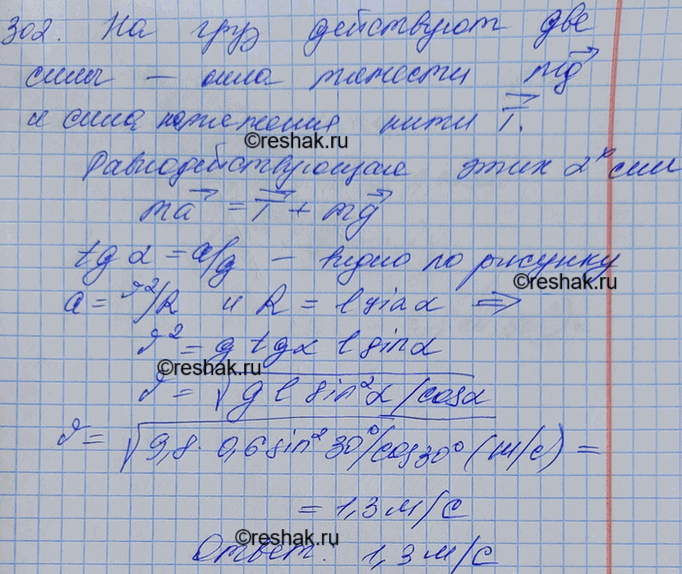 302. На груз действуют две
силы — сила тяжести mg⃗
и сила натяжения нити T⃗.
©reshak.ru
Равнодействующая этих 2х сил
ma⃗ = T⃗ + mg⃗
tg α = a/g — видно по рисунку
©reshak.ru
a = υ²/R и R = l sin α ⇒
υ² = g tg α l sin α
©reshak.ru
υ = √(g l sin² α / cos α)
υ = √(9,8 · 0,6 sin² 30° / cos 30°) (м/с) =
= 1,3 м/с
©reshak.ru
Ответ: 1,3 м/с